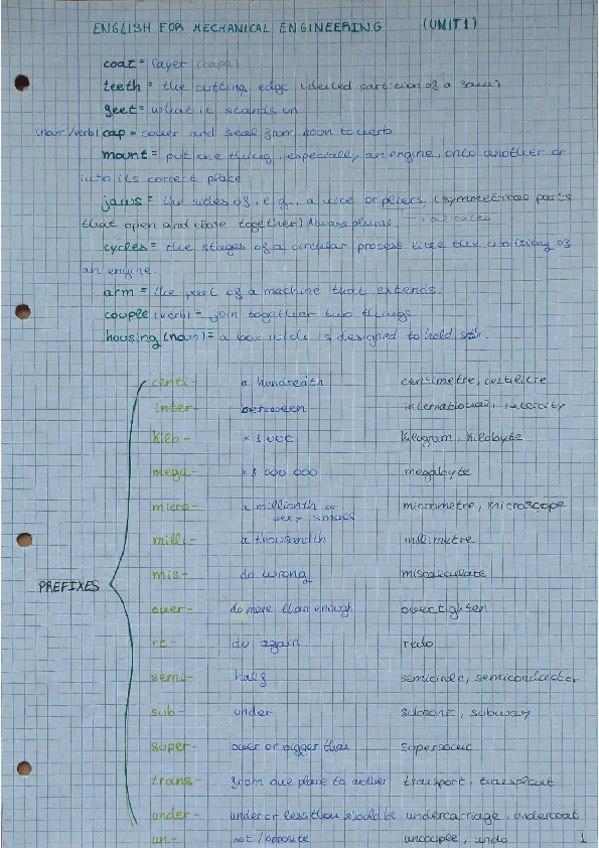 ENGLISH FOR MECHANICAL ENGINEERING (UNIT1)
coat = layer (capa)
teeth = the cutting edge (dented partition of a saw)
feet = what it stands on
(noun/verb) cap = cover and seal from noun to verb
mount = put one thing, especially an engine, onto another or
into its correct place
jaws = the sides of, e.g., a vice or pliers. (symmetrical parts
that open and close together) Always plural. alicates
cycles = the stages of a circular process like the working of
an engine.
arm = the part of a machine that extends.
couple (verb) = join together two things
housing (noun) = a box which is designed to hold sth.
PREFIXES
centi- a hundredth centimetre, centilitre
inter- between international, intercity
kilo- × 1 000 kilogram, kilobyte
mega- × 1 000 000 megabyte
micro- a millionth or very small micrometre, microscope
milli- a thousandth millimetre
mis- do wrong miscalculate
over- do more than enough overtighten
re- do again redo
semi- half semicircle, semiconductor
sub- under subsonic, subway
super- over or bigger than supersonic
trans- from one place to another transport, transplant
under- under or less than should be undercarriage, undercoat
un- not / opposite uncouple, undo
1